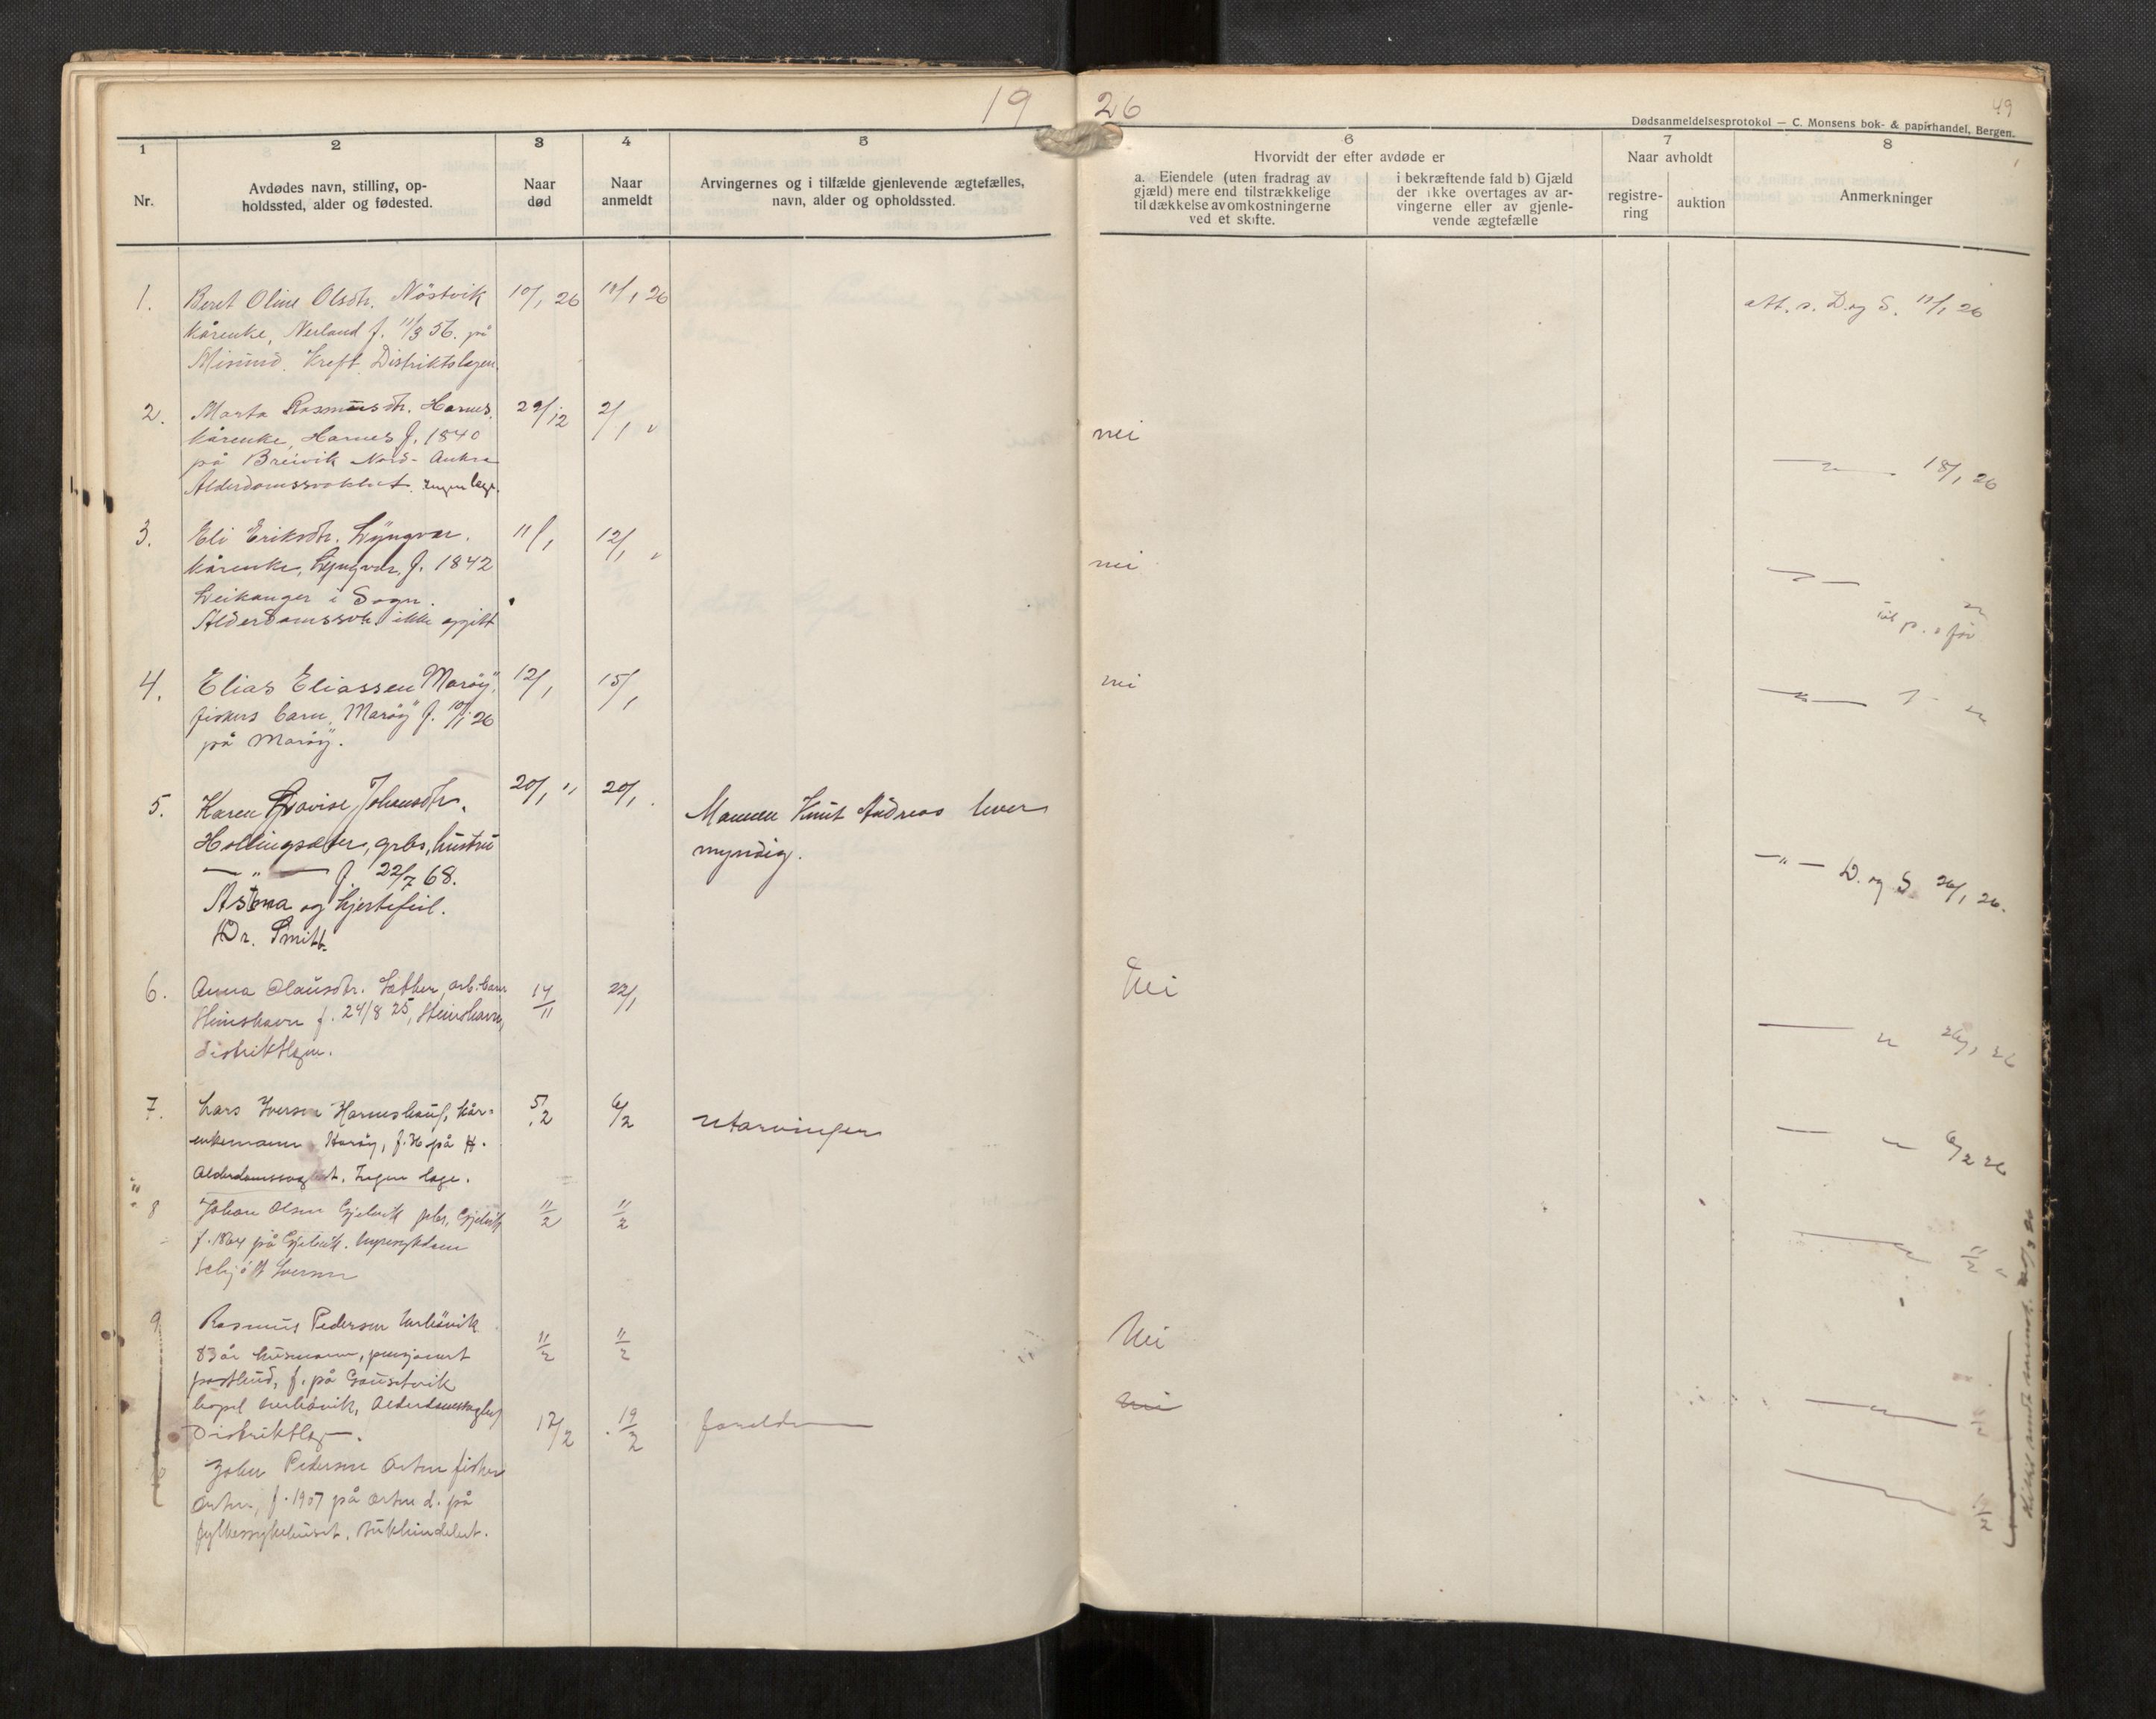 19
26
49
Dødsanmeldelsesprotokol — C. Monsens bok- & papirhandel, Bergen.
1
2
3
4
5
6
7
8
Nr.
Avdødes navn, stilling, op-
holdssted, alder og fødested.
Naar
død
Naar
anmeldt
Arvingernes og i tilfælde gjenlevende ægtefælles,
navn, alder og opholdssted.
Hvorvidt der efter avdøde er
a. Eiendele (uten fradrag av
gjæld) mere end tilstrækkelige
til dækkelse av omkostningerne
ved et skifte.
i bekræftende fald b) Gjæld
der ikke overtages av ar-
vingerne eller av gjenle-
vende ægtefælle
Naar avholdt
registre-
ring
auktion
Anmerkninger
1. Beret Oline Olsdtr. Nöstvik 10/1 26 11/1 26 Att. s. D. og S. 11/1 26
kårenke, Nerland f. 11/3 56. på
Misund. Kreft. Distriktslegen.
2. Marta Rasmusdtr. Harnes. 29/12 2/1 " nei
kårenke, Harnes f. 1840
på Breivik Nord-Aukra — " — 18/1 26
Alderdomssvakhet. Ingen lege.
3. Eli Eriksdtr. Lyngvær. 11/1 12/1 "
kårenke, Lyngvær, f. 1842 nei — " —
Leikanger i Sogn.
Alderdomssv. ikke opgitt
4. Elias Eliassen Marøy, 12/1 15/1 nei — " — "
fiskers barn, Marøy f. 10/1 26
på Marøy.
5. Karen Lovise Johansdtr. 20/1 " 20/1. Mannen Knut Andreas lever
Hollingsæter, grbr, hustru myndig.
— " — f. 22/7 68. — " — D. og S. 26/1 26.
Astma og hjertefeil.
Dr. Smitt.
6. Anna Olausdtr. Sæther, arb. barn 14/11 22/1 Nei
Steinshavn f. 24/8 25, Steinshavn, — " 26/1 26
distriktlegen.
7. Lars Iversen Harnshaug, kår- 5/2 6/2 Utarvinger
enkemann Harøy, f. 36 på H. — " 6/2 26
Alderdomssvaghet. Ingen lege.
8 Johan Olsen Gjelvik gbr, Gjelvik 11/2 11/2
f. 1864 på Gjelvik. — " 11/2 "
Schjött Iversen
9 Rasmus Pedersen 11/2 11/2 Nei
83 år husmann, pensjonert
postbud, f. på Gausetvik
bopel Alderdomssvaghet — " — 11/2
Distriktleg—.
John Pedersen Orten fisker 17/2 19/2 foreldre nei
Orten, f. 1907 på Orten d. på
fylkessykehuset.